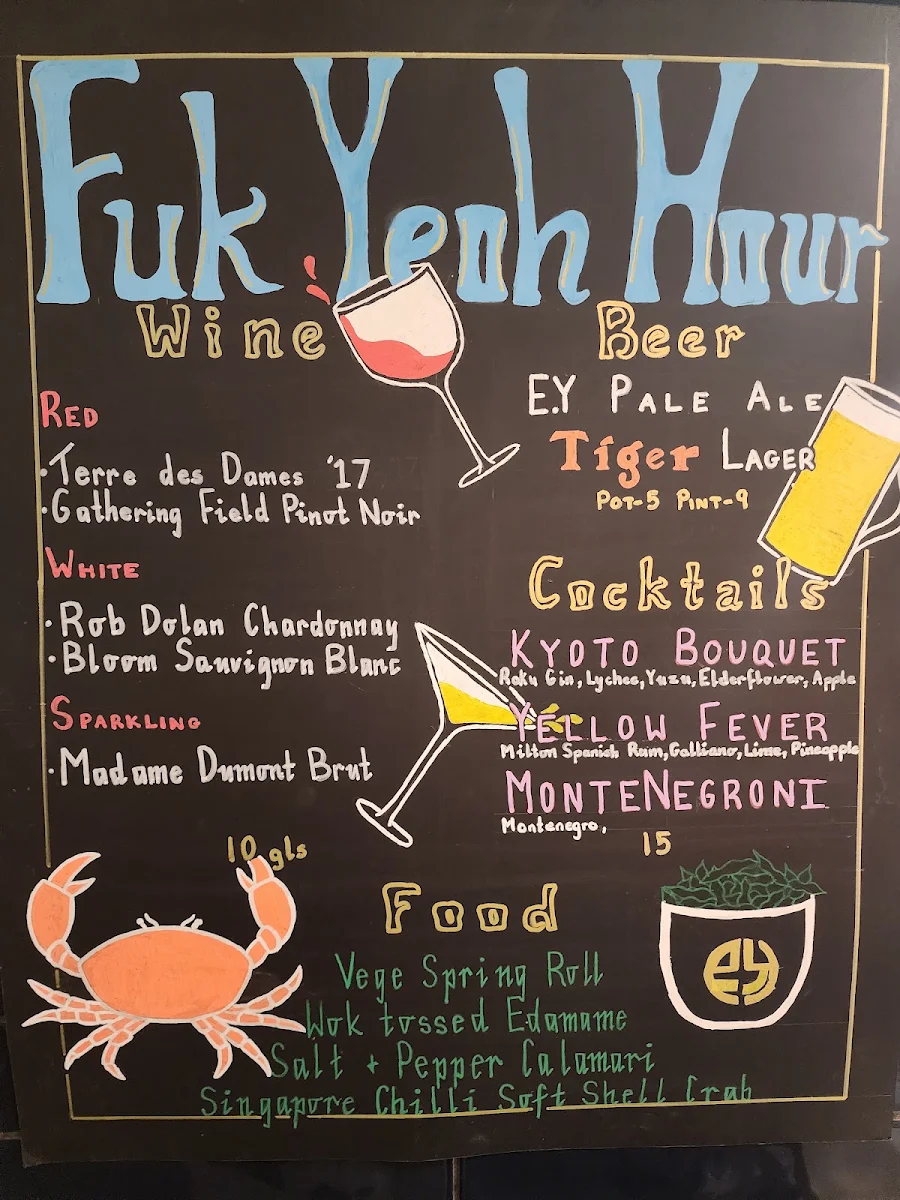 Fuk Yeoh Hour
Wine
RED
·Terre des Dames '17
·Gathering Field Pinot Noir
WHITE
·Rob Dolan Chardonnay
·Bloom Sauvignon Blanc
SPARKLING
·Madame Dumont Brut
10 gls
Beer
E.Y PALE ALE
Tiger LAGER
POT-5 PINT-9
Cocktails
KYOTO BOUQUET
Roku Gin, Lychee, Yuzu, Elderflower, Apple
YELLOW FEVER
Milton Spanish Rum, Galliano, Lime, Pineapple
MONTENEGRONI
Montenegro,
15
Food
Vege Spring Roll
Wok tossed Edamame
Salt + Pepper Calamari
Singapore Chilli Soft Shell Crab
ey